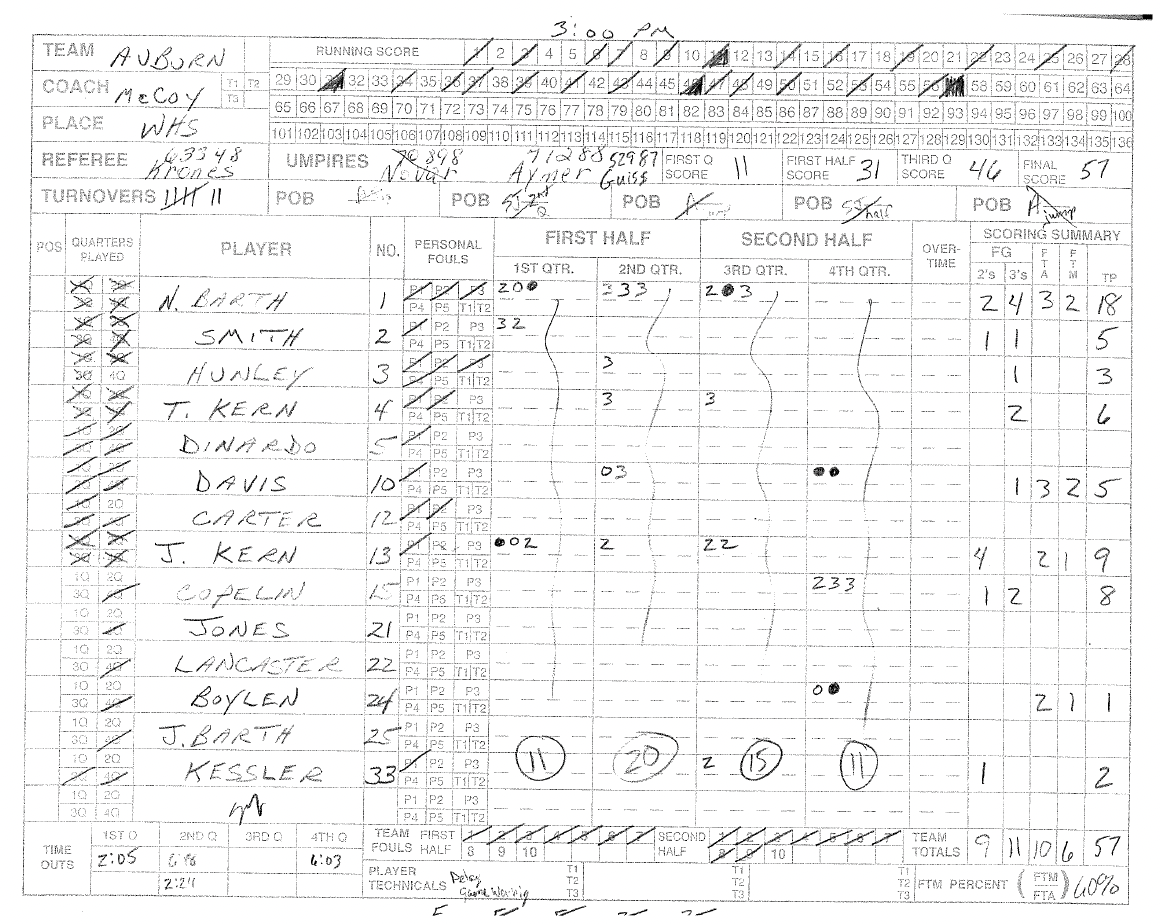 3:00 PM
TEAM AUBURN RUNNING SCORE 1 2 3 4 5 6 7 8 9 10 11 12 13 14 15 16 17 18 19 20 21 22 23 24 25 26 27 28
COACH McCOY T1 T2 T3 29 30 31 32 33 34 35 36 37 38 39 40 41 42 43 44 45 46 47 48 49 50 51 52 53 54 55 56 57 58 59 60 61 62 63 64
65 66 67 68 69 70 71 72 73 74 75 76 77 78 79 80 81 82 83 84 85 86 87 88 89 90 91 92 93 94 95 96 97 98 99 100
PLACE WHS 101 102 103 104 105 106 107 108 109 110 111 112 113 114 115 116 117 118 119 120 121 122 123 124 125 126 127 128 129 130 131 132 133 134 135 136
REFEREE 63348 Krones UMPIRES 70898 Novar 71288 Aymer 52987 Guiss FIRST Q SCORE 11 FIRST HALF SCORE 31 THIRD Q SCORE 46 FINAL SCORE 57
TURNOVERS POB POB SJ 2nd Q POB A POB SJ half POB A jump
POS QUARTERS PLAYED PLAYER NO. PERSONAL FOULS FIRST HALF SECOND HALF OVER-TIME SCORING SUMMARY
1ST QTR. 2ND QTR. 3RD QTR. 4TH QTR. FG 2's 3's FTA FTM TP
N. BARTH 1 P1 P2 P3 P4 P5 T1 T2 200 333 203 2 4 3 2 18
SMITH 2 P1 P2 P3 P4 P5 T1 T2 32 1 1 5
3Q 4Q HUNLEY 3 P1 P2 P3 P4 P5 T1 T2 3 1 3
T. KERN 4 P1 P2 P3 P4 P5 T1 T2 3 3 2 6
DINARDO 5 P1 P2 P3 P4 P5 T1 T2
DAVIS 10 P1 P2 P3 P4 P5 T1 T2 03 1 3 2 5
1Q 2Q CARTER 12 P1 P2 P3 P4 P5 T1 T2
J. KERN 13 P1 P2 P3 P4 P5 T1 T2 002 2 22 4 2 1 9
1Q 2Q 3Q COPELIN 15 P1 P2 P3 P4 P5 T1 T2 233 1 2 8
1Q 2Q 3Q JONES 21 P1 P2 P3 P4 P5 T1 T2
1Q 2Q 3Q 4Q LANCASTER 22 P1 P2 P3 P4 P5 T1 T2
1Q 2Q 3Q 4Q BOYLEN 24 P1 P2 P3 P4 P5 T1 T2 00 2 1 1
1Q 2Q 3Q J. BARTH 25 P1 P2 P3 P4 P5 T1 T2
1Q 2Q 4Q KESSLER 33 P1 P2 P3 P4 P5 T1 T2 11 20 2 15 11 1 2
1Q 2Q 3Q 4Q P1 P2 P3 P4 P5 T1 T2
TIME OUTS 1ST Q 2ND Q 3RD Q 4TH Q TEAM FOULS FIRST HALF 1 2 3 4 5 6 7 8 9 10 SECOND HALF 1 2 3 4 5 6 7 8 9 10 TEAM TOTALS 9 11 10 6 57
2:05 6:03
2:24 PLAYER TECHNICALS Delay Game Warnig T1 T2 T3 T1 T2 T3 T1 T2 T3 FTM PERCENT (FTM FTA) 60%